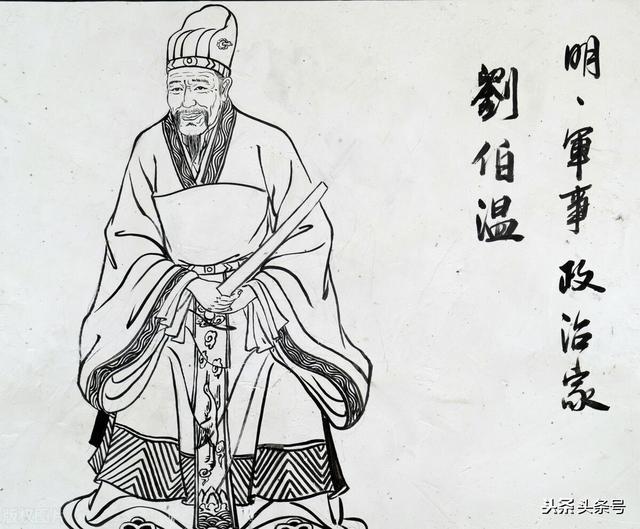 明、軍事政治家
劉伯温
头条头条号